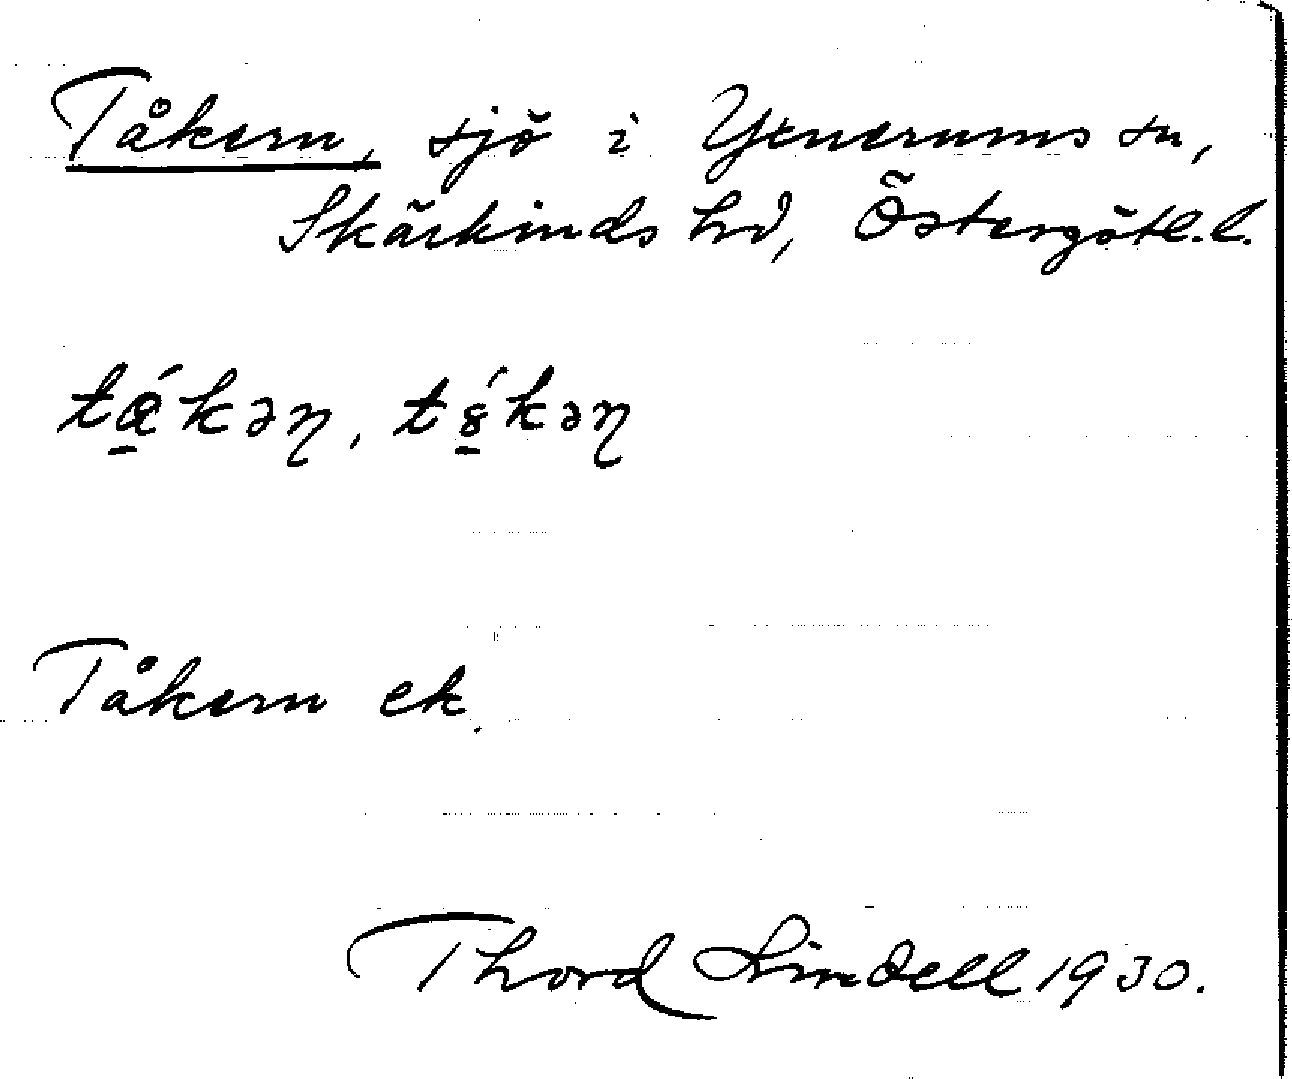 Tåkern, sjö i Yxnerums sn,
Skärkinds hd, Östergötl. l.
tǿ̠kəɳ, tɞ̠́kəɳ
Tåkern ek.
Thord Lindell 1930.